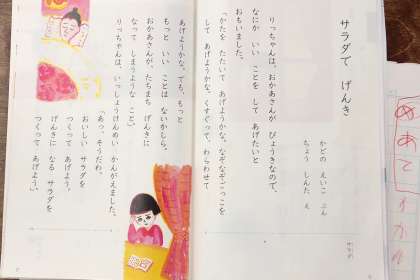 サラダで げんき
かどの えいこ ぶん
ちょう しんた え
りっちゃんは、おかあさんが びょうきなので、
なにか いい ことを して あげたいと
おもいました。
「かたを たたいて あげようかな。なぞなぞごっこを
して あげようかな。くすぐって、わらわせて
あげようかな。でも、もっと
もっと いい ことは ないかしら。
おかあさんが、たちまち げんきに
なって しまうような こと。」
りっちゃんは、いっしょうけんめい かんがえました。
「あっ、そうだわ。
おいしい サラダを
つくって あげよう。
げんきに なる サラダを
つくって あげよう。」
めあて